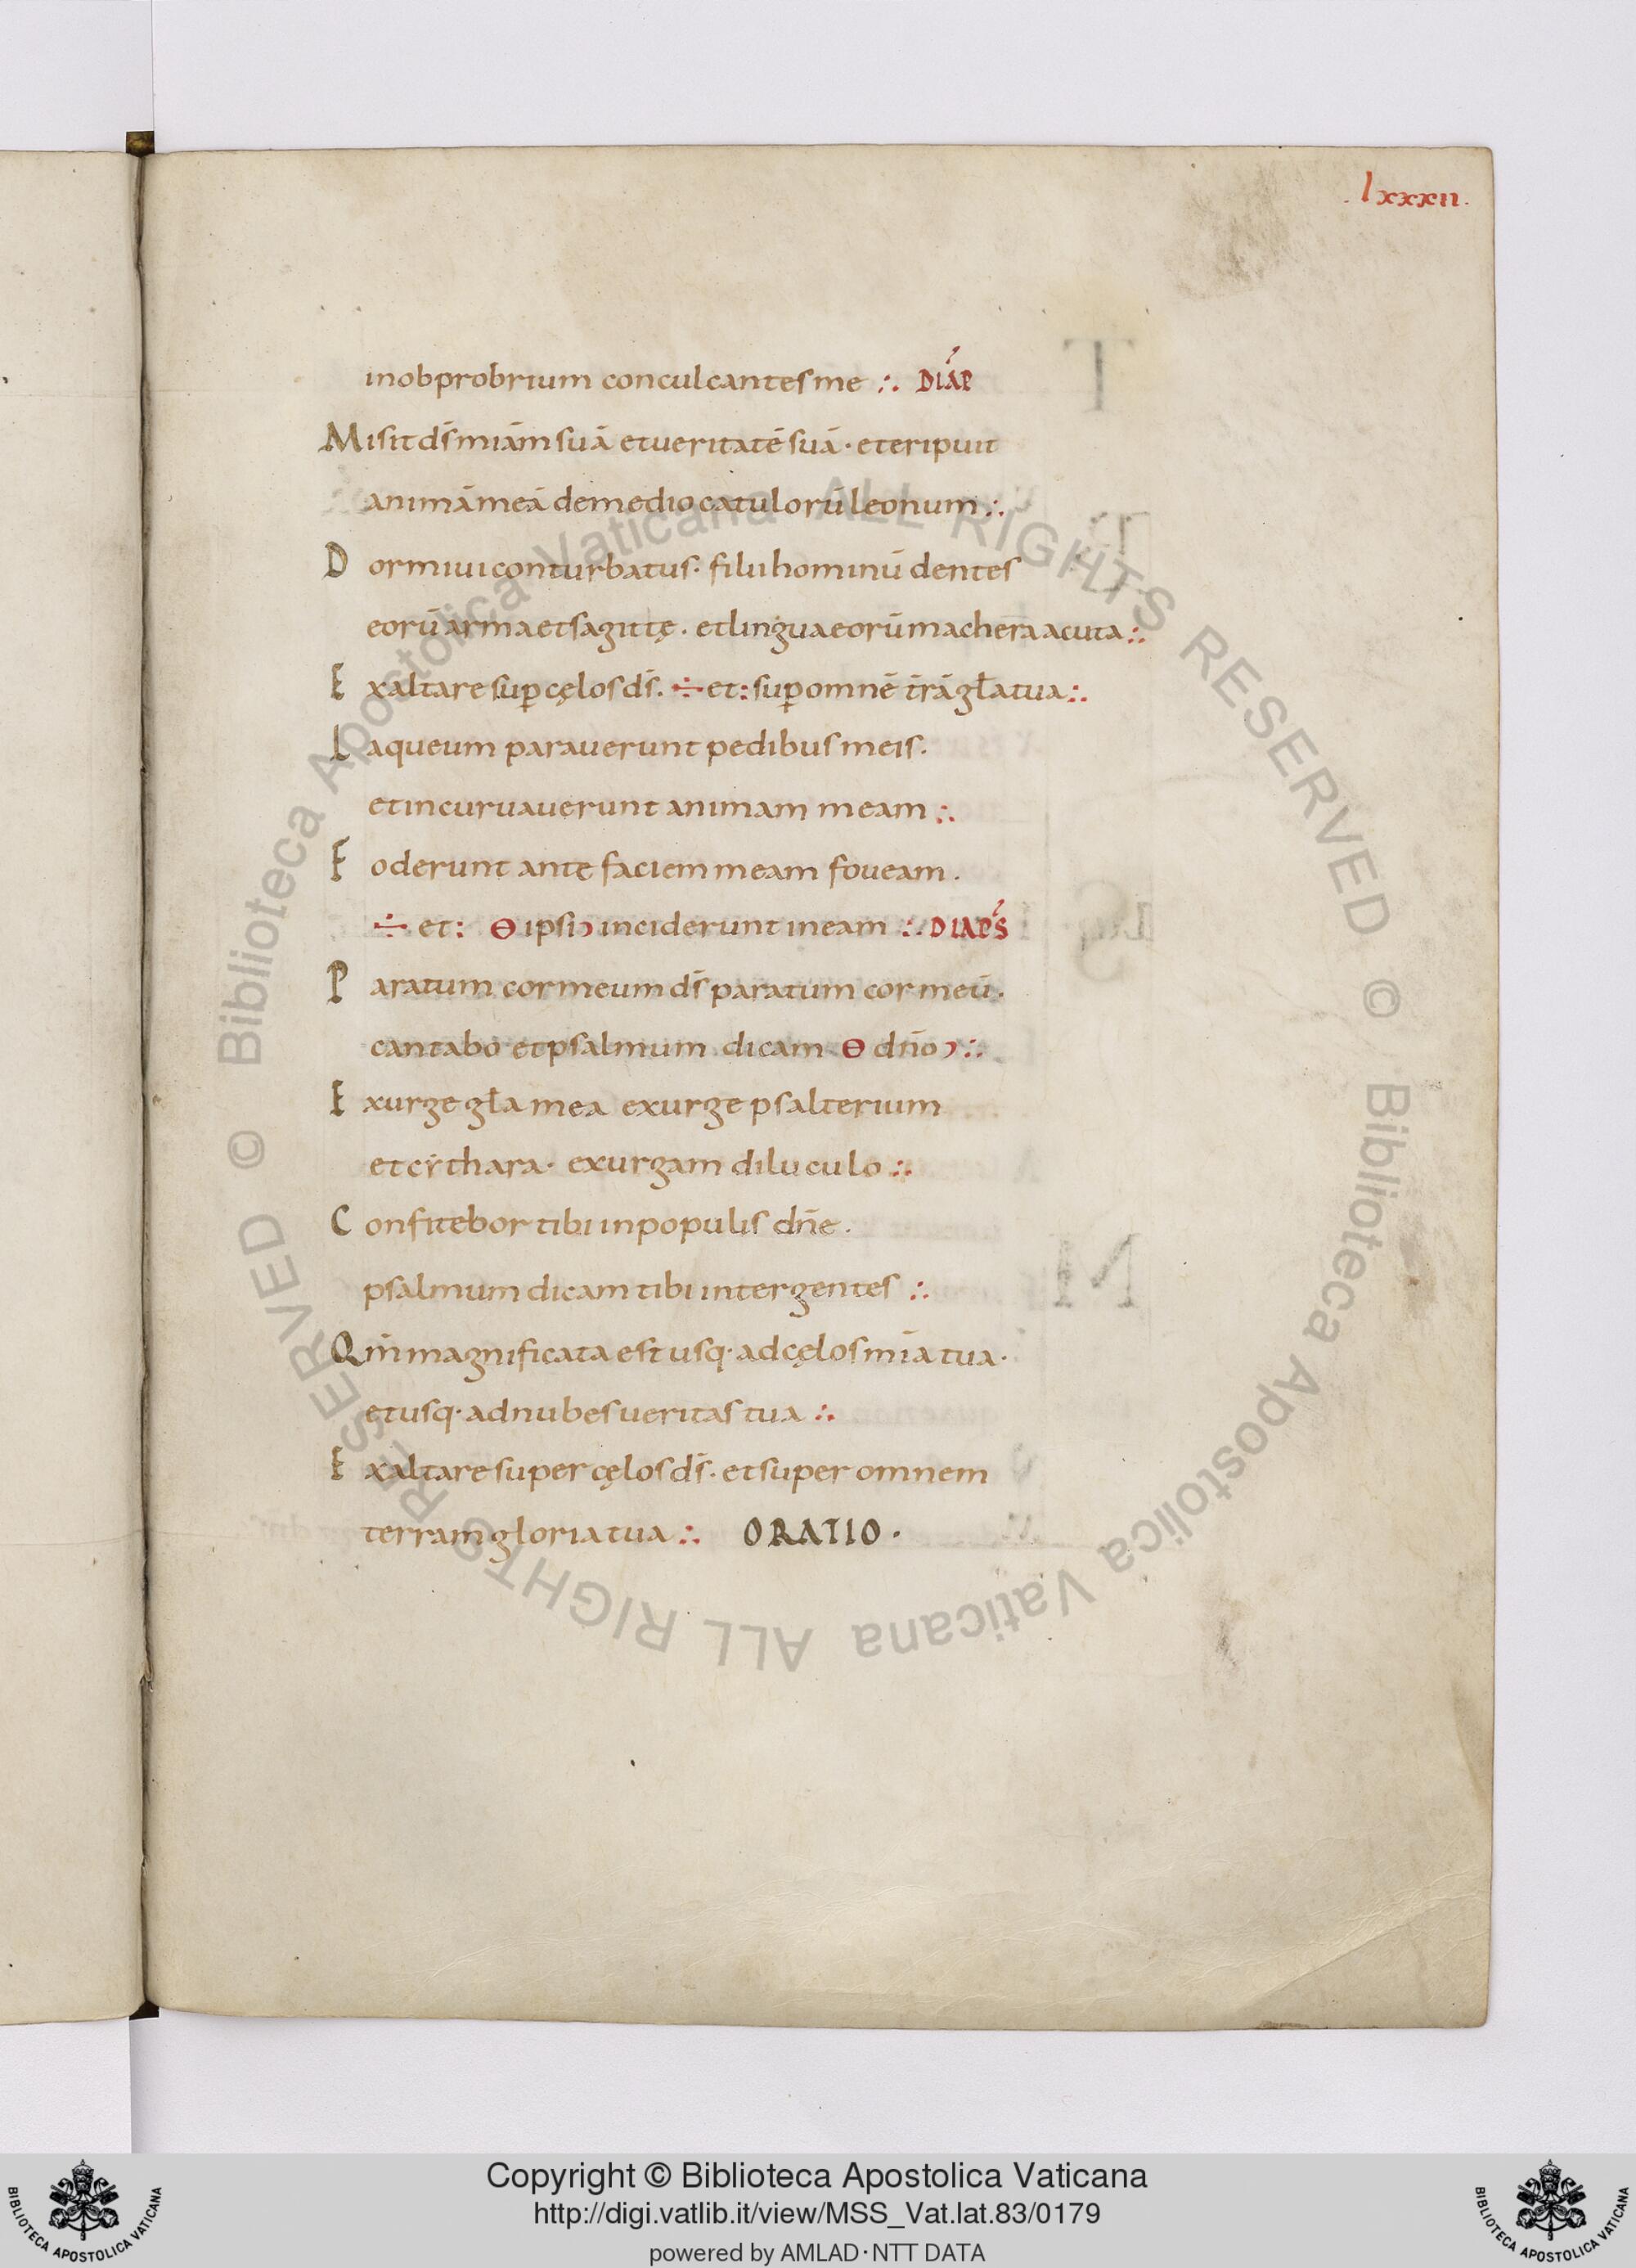 .lxxxii.
inobprobrium conculcantesme ∴ DIAP
Misit ds̄ miām suā et ueritatē suā· et eripuit
animā meā de medio catulorū leonum ∴
Dormiui conturbatus· filii hominū dentes
eorū arma et sagittę· et lingua eorū machera acuta ∴
Exaltare sup̄ cęlos ds̄. ÷ et: sup̄ omnē trā̄ gła tua ∴
Laqueum parauerunt pedibus meis.
et incuruauerunt animam meam ∴
Foderunt ante faciem meam foueam.
÷ et: Θ ipsi ͻ inciderunt in eam ∴ DIAPS
Paratum cor meum ds̄ paratum cor meū·
cantabo et psalmum dicam Θ dn̄o ͻ ∴
Exurge gła mea exurge psalterium
et cẏthara· exurgam diluculo ∴
Confitebor tibi in populis dn̄e.
psalmum dicam tibi inter gentes ∴
Qm̄ magnificata est usq· ad cęlos mīa tua·
et usq· ad nubes ueritas tua ∴
Exaltare super cęlos ds̄· et super omnem
terram gloria tua ∴ ORATIO·
© Biblioteca Apostolica Vaticana ALL RIGHTS RESERVED © Biblioteca Apostolica Vaticana ALL RIGHTS RESERVED
Copyright © Biblioteca Apostolica Vaticana
http://digi.vatlib.it/view/MSS_Vat.lat.83/0179
powered by AMLAD·NTT DATA
BIBLIOTECA APOSTOLICA VATICANA
BIBLIOTECA APOSTOLICA VATICANA